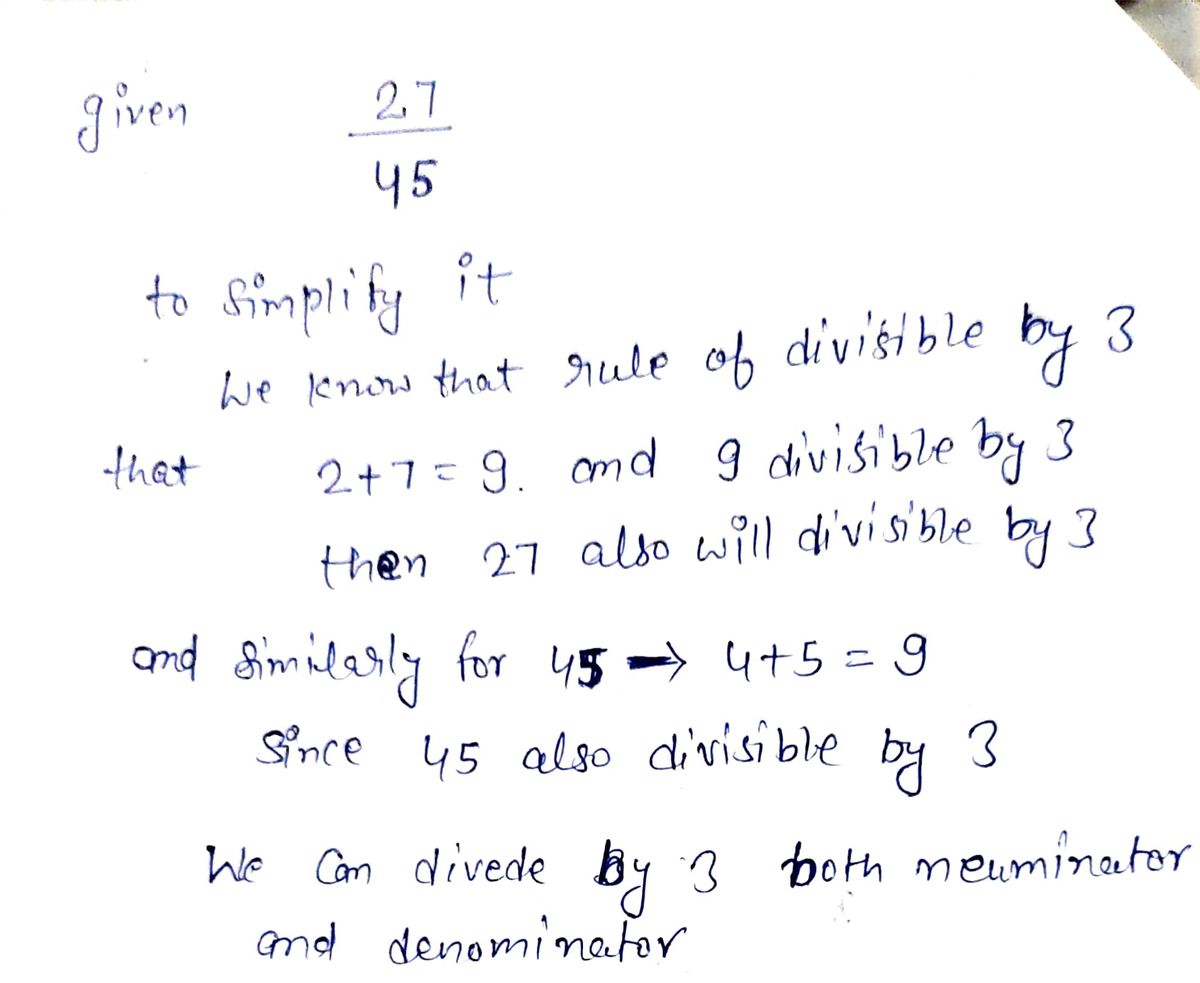 given 27
45
to simplify it
We know that rule of divisible by 3
that 2+7=9. and 9 divisible by 3
then 27 also will divisible by 3
and similarly for 45 → 4+5=9
Since 45 also divisible by 3
We can divede By 3 both neuminator
and denominator